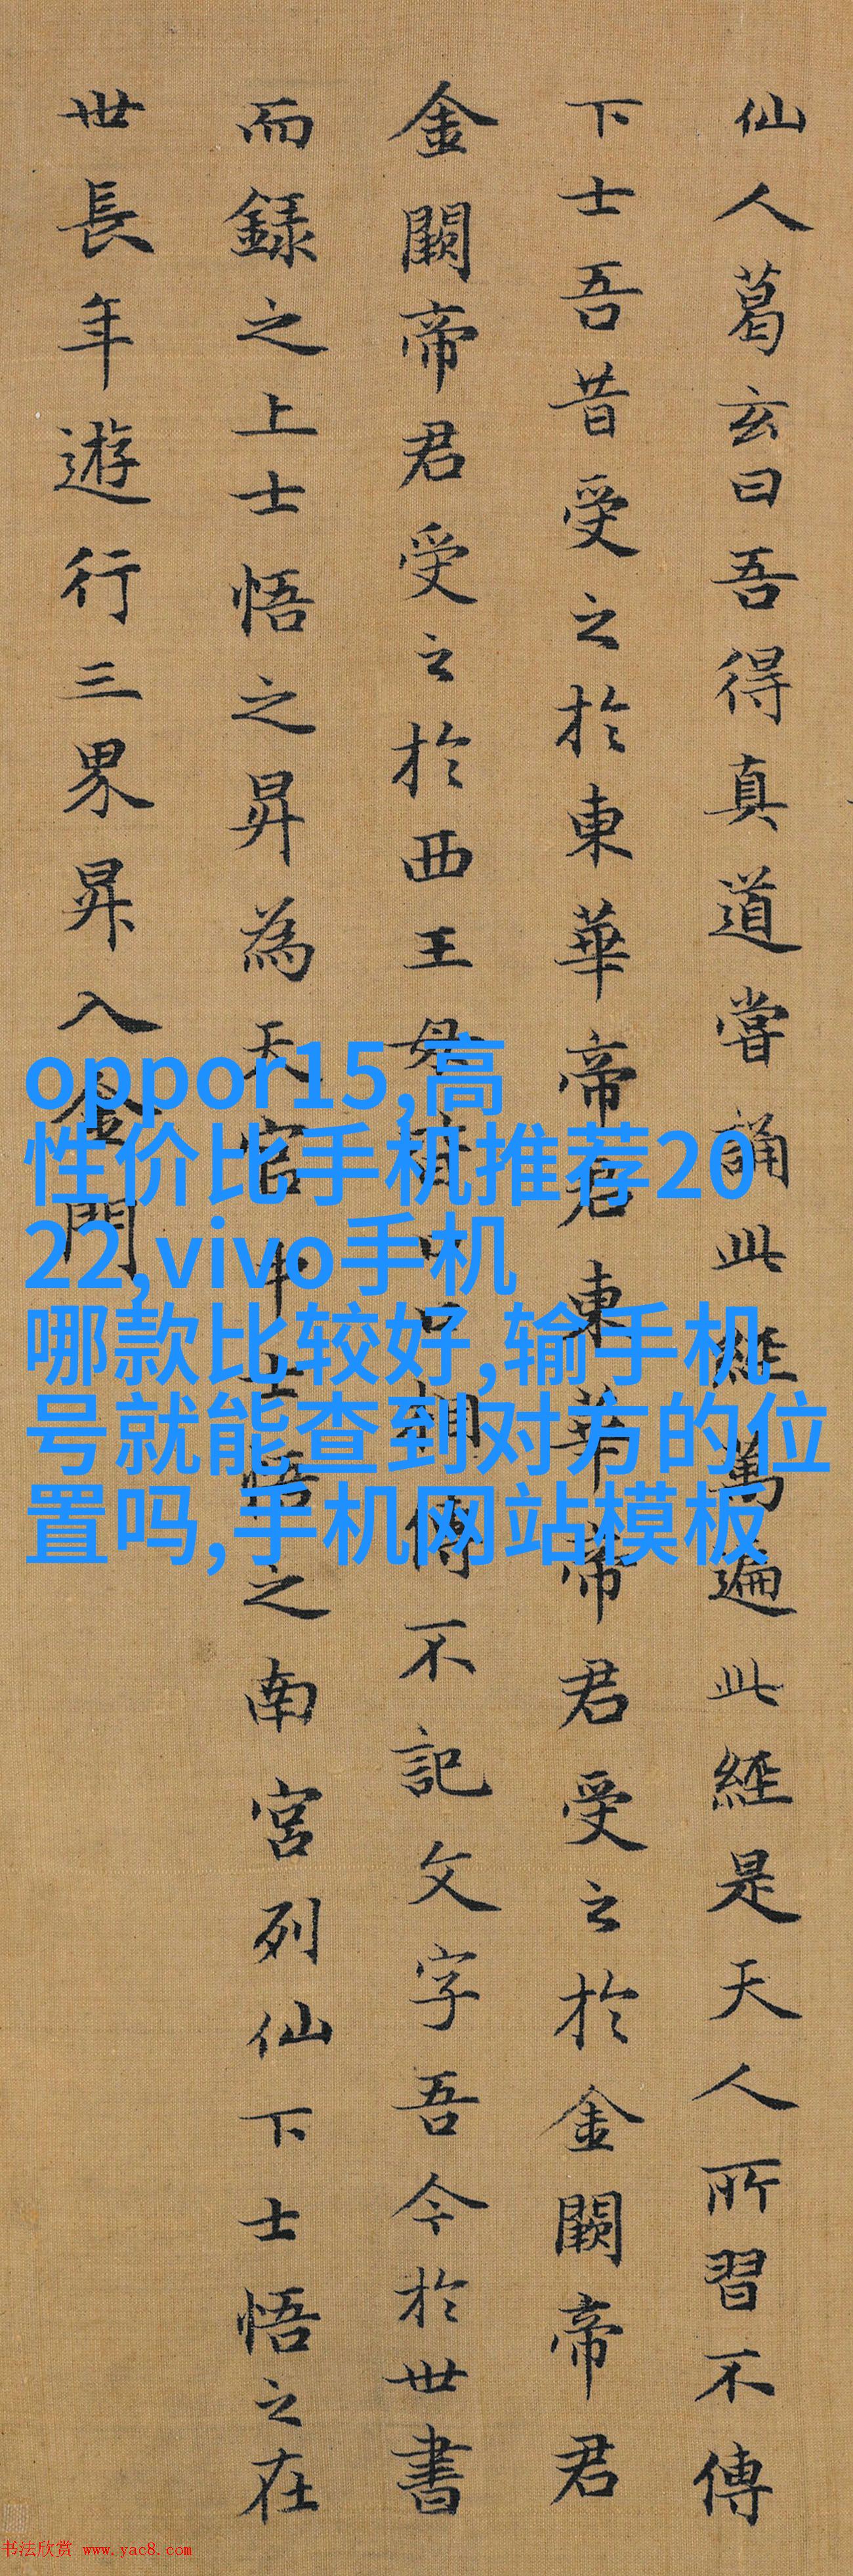 仙人葛玄曰吾得真道嘗誦此經萬遍此經是天人所習不傳
下士吾昔受之於東華帝君東華帝君受之於金闕帝君
金闕帝君受之於西王母皆口口相傳不記文字吾今於世書
而録之上士悟之昇為天官中士悟之南宮列仙下士悟之在
世長年遊行三界昇入金門
oppor15,高
性价比手机推荐20
22,vivo手机
哪款比较好,输手机
号就能查到对方的位
置吗,手机网站模板
书法欣赏 www.yac8.com